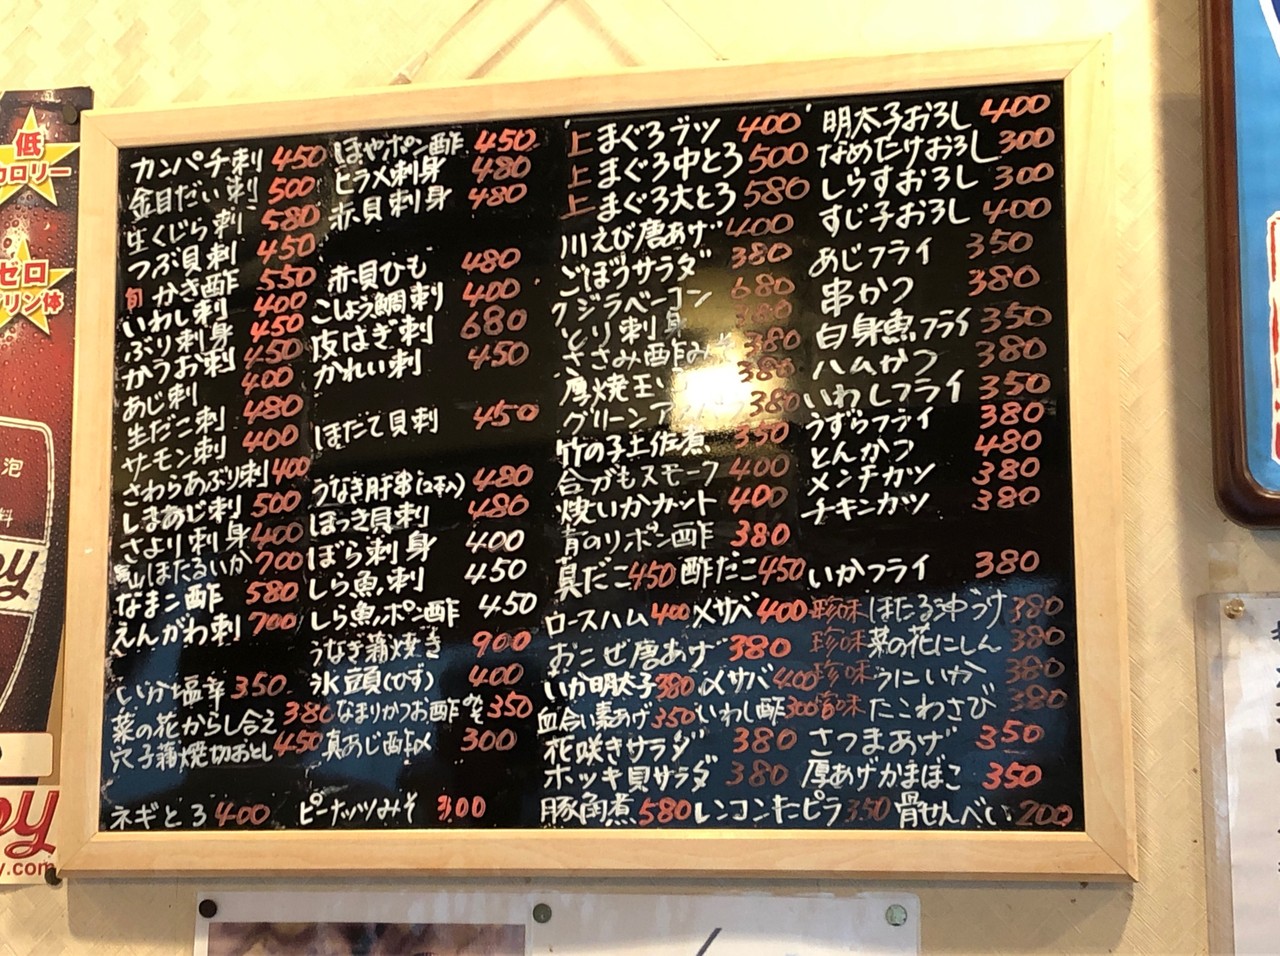 低
カロリー
ゼロ
プリン体
泡
料
カンパチ刺 450
金目だい刺 500
生くじら刺 580
つぶ貝刺 450
旬 かき酢 550
いわし刺 400
ぶり刺身 450
かつお刺 450
あじ刺 400
生だこ刺 480
サーモン刺 400
さわらあぶり刺 400
しまあじ刺 500
さより刺身 400
ほたるいか 700
なまこ酢 580
えんがわ刺 700
いか塩辛 350
菜の花からし合え 380
穴子蒲焼切おとし 450
ネギとろ 400
ほやポン酢 450
ヒラメ刺身 480
赤貝刺身 480
赤貝ひも 480
こしょう鯛刺 400
皮はぎ刺 680
かれい刺 450
ほたて貝刺 450
うなぎ肝串(2本入) 480
ほっき貝刺 480
ぼら刺身 400
しら魚刺 450
しら魚ポン酢 450
うなぎ蒲焼き 900
氷頭(ひず) 400
なまりかつお酢みそ 350
真あじ酢〆 300
ピーナッツみそ 300
上 まぐろブツ 400
上 まぐろ中とろ 500
上 まぐろ大とろ 580
川えび唐あげ 400
ごぼうサラダ 380
クジラベーコン 680
とり刺身 380
ささみ酢みそ 380
厚焼玉 380
グリーンア 380
竹の子土佐煮 350
合がもスモーク 400
焼いかカット 400
青のりポン酢 380
真だこ 450 酢だこ 450
ロースハム 400 〆サバ 400
おこぜ唐あげ 380
いか明太子 380 〆サバ 400
血合い素あげ 350 いわし酢 300
花咲きサラダ 380
ホッキ貝サラダ 380
豚角煮 580 レンコンたピラ 350 骨せんべい 200
明太子おろし 400
なめたけおろし 300
しらすおろし 300
すじ子おろし 400
あじフライ 350
串かつ 380
白身魚フライ 350
ハムかつ 380
いわしフライ 350
うずらフライ 380
とんかつ 480
メンチカツ 380
チキンカツ 380
いかフライ 380
珍味 ほたる沖づけ 380
珍味 菜の花にしん 380
珍味 うにいか 380
珍味 たこわさび 380
さつまあげ 350
厚あげかまぼこ 350